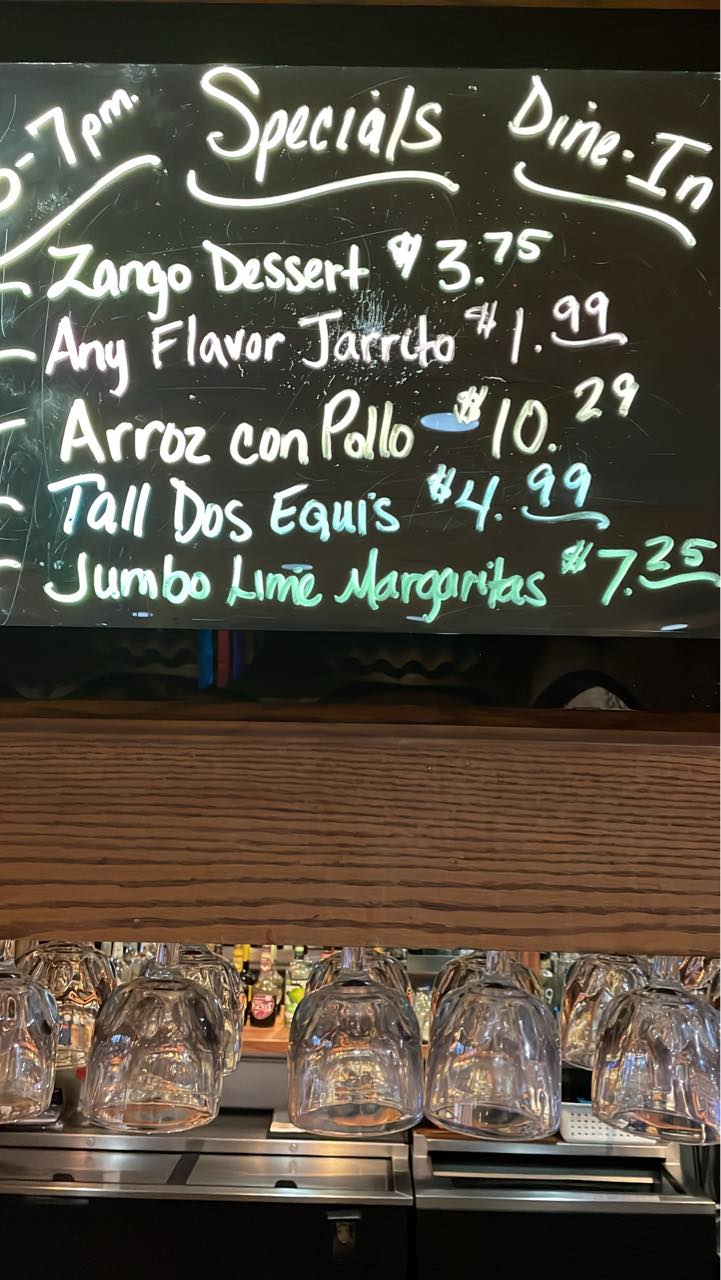 -7pm. Specials Dine-In
Zango Dessert $3.75
Any Flavor Jarrito $1.99
Arroz con Pollo $10.29
Tall Dos Equis $4.99
Jumbo Lime Margaritas $7.25